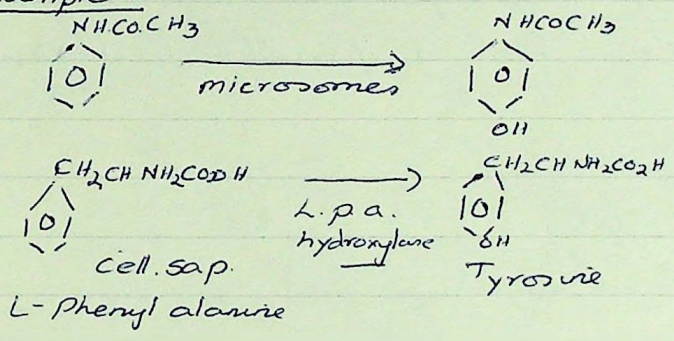 NH.CO.CH3 NHCOCH3
microsomes
OH
CH2CH NH2COOH CH2CH NH2CO2H
L.p.a.
hydroxylase OH
cell.sap. Tyrosine
L-Phenyl alanine